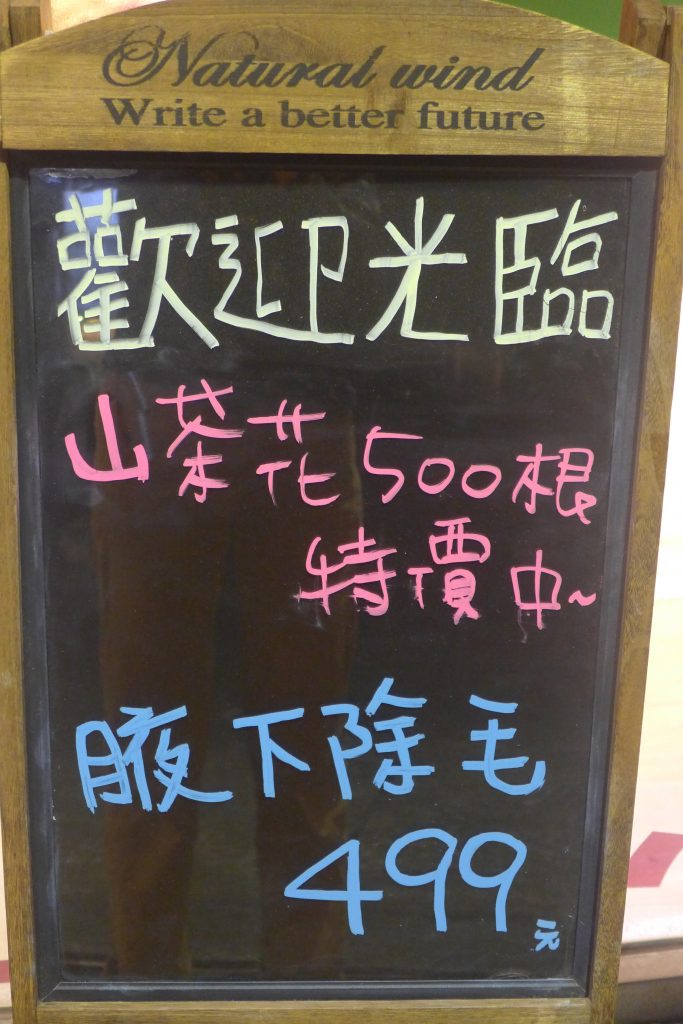 Natural wind
Write a better future
歡迎光臨
山茶花500根
特價中~
腋下除毛
499元